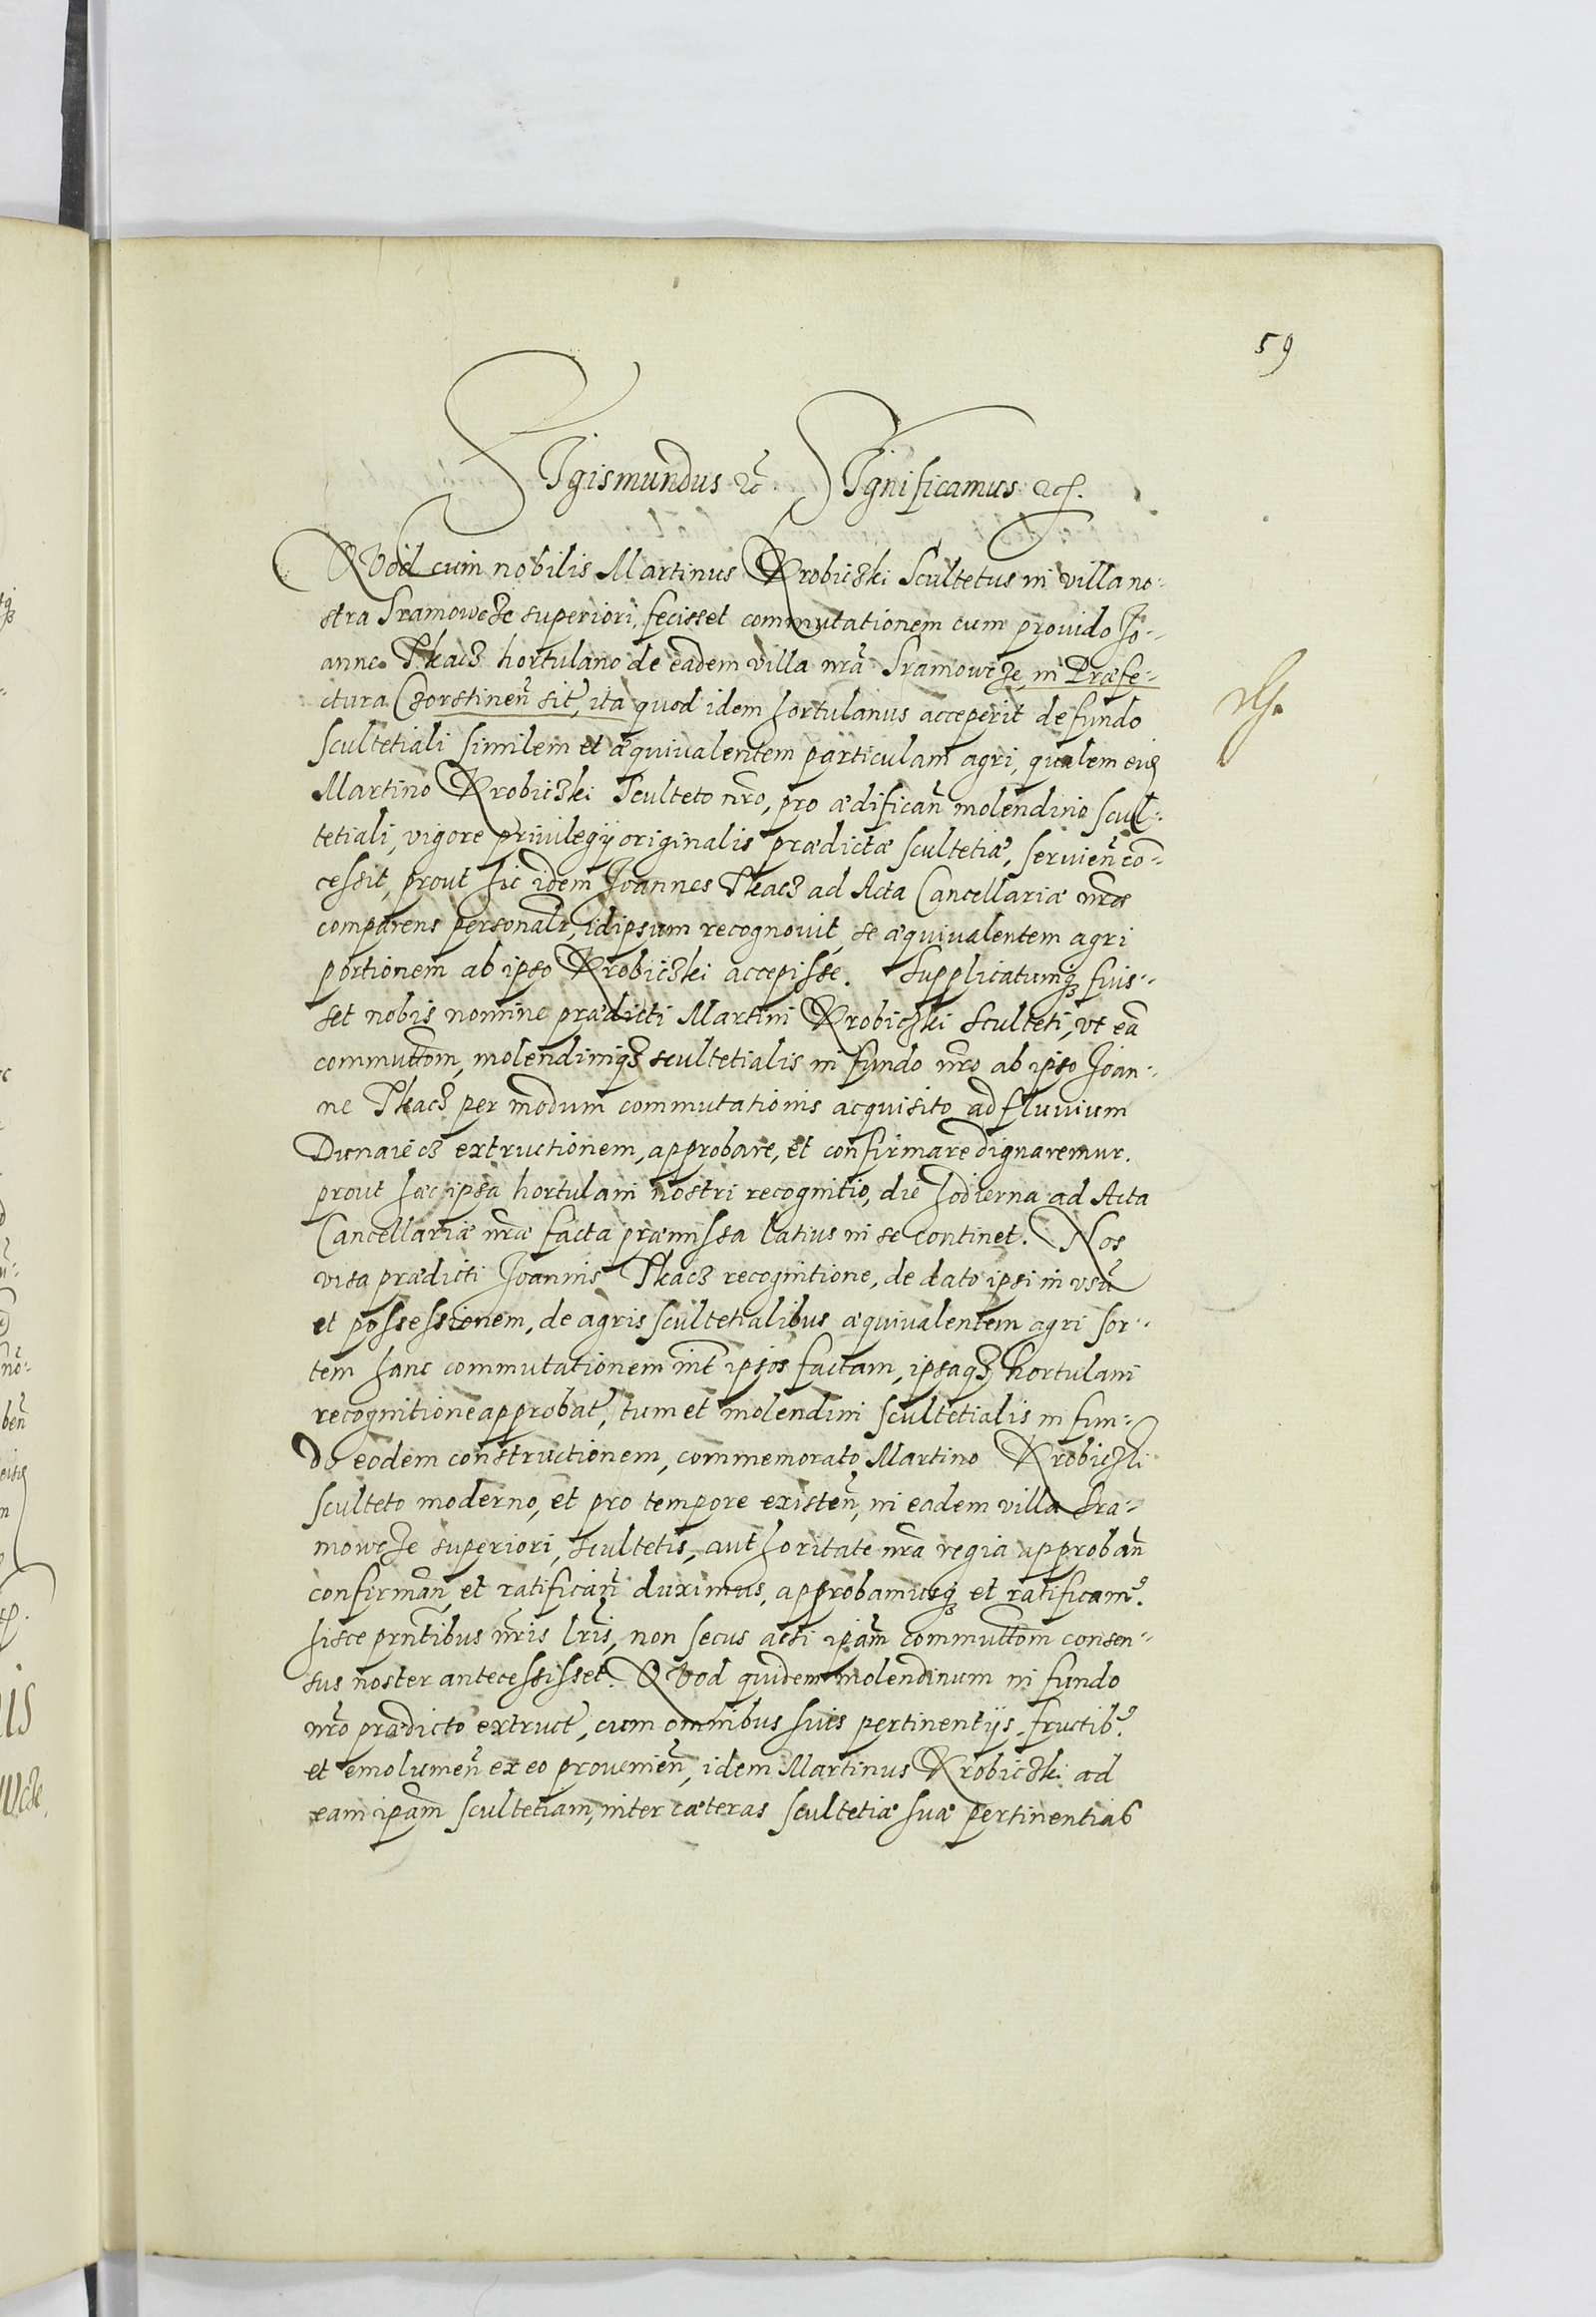 59
Sigismundus &c. Significamus &c.
QVod cum nobilis Martinus Krobiczki Scultetus in villa no-
stra Sramowcze superiori, fecisset commutationem cum prouido Jo-
anne Tkacz hortulano de eadem villa nrã Sramowcze, in Præfe-
ctura Czorstineñ sit̃, ita quod idem hortulanus acceperit de fundo
scultetiali similem et æquiualentem particulam agri, qualem eidẽ
Martino Krobiczki Sculteto nr̃o, pro ædificañ molendino scul-
tetiali, vigore priuilegÿ originalis prædictæ scultetiæ, seruieñ con̄-
cessit, prout hic idem Joannes Tkacz ad Acta Cancellariæ nr̃æ
comparens personalr̃, idipsum recognouit, se æquiualentem agri
portionem ab ipso Krobiczki accepisse. Supplicatumq̃ fuis-
set nobis nomine prædicti Martini Krobiczki Sculteti, vt eã
commuttõm, molendiniqz scultetialis in fundo nr̃o ab ipso Joan-
ne Tkacz per modum commutationis acquisito ad fluuium
Dunaiecz extructionem, approbare, et confirmare dignaremur.
prout hæc ipsa hortulani nostri recognitio, die hodierna ad Acta
Cancellariæ nr̃æ facta præmissa latius in se continet. Nos
visa prædicti Joannis Tkacz recognitione, de dato ipsi in vsũ
et possessionem, de agris scultetialibus æquiualentem agri sor-
tem hanc commutationem int̃ ipsos factam, ipsaqz hortulani
recognitione approbat̃, tum et molendini scultetialis in fun-
do eodem constructionem, commemorato Martino Krobiczki
sculteto moderno, et pro tempore existeñ, in eadem villa Sra-
mowcze superiori, scultetis, authoritate nr̃a regia approbañ
confirmañ, et ratificañ duximus, approbamusq̃ et ratificam9.
hisce prñtibus nr̃is lr̃is, non secus acsi ipãm commuttõm consen-
sus noster antecessisset. QVod quidem molendinum in fundo
nr̃o prædicto extruct̃, cum omnibus suis pertinentijs, fructib9.
et emolumeñ ex eo prouenieñ, idem Martinus Krobiczki ad
eam ipãm scultetiam, inter cæteras scultetiæ suæ pertinentias